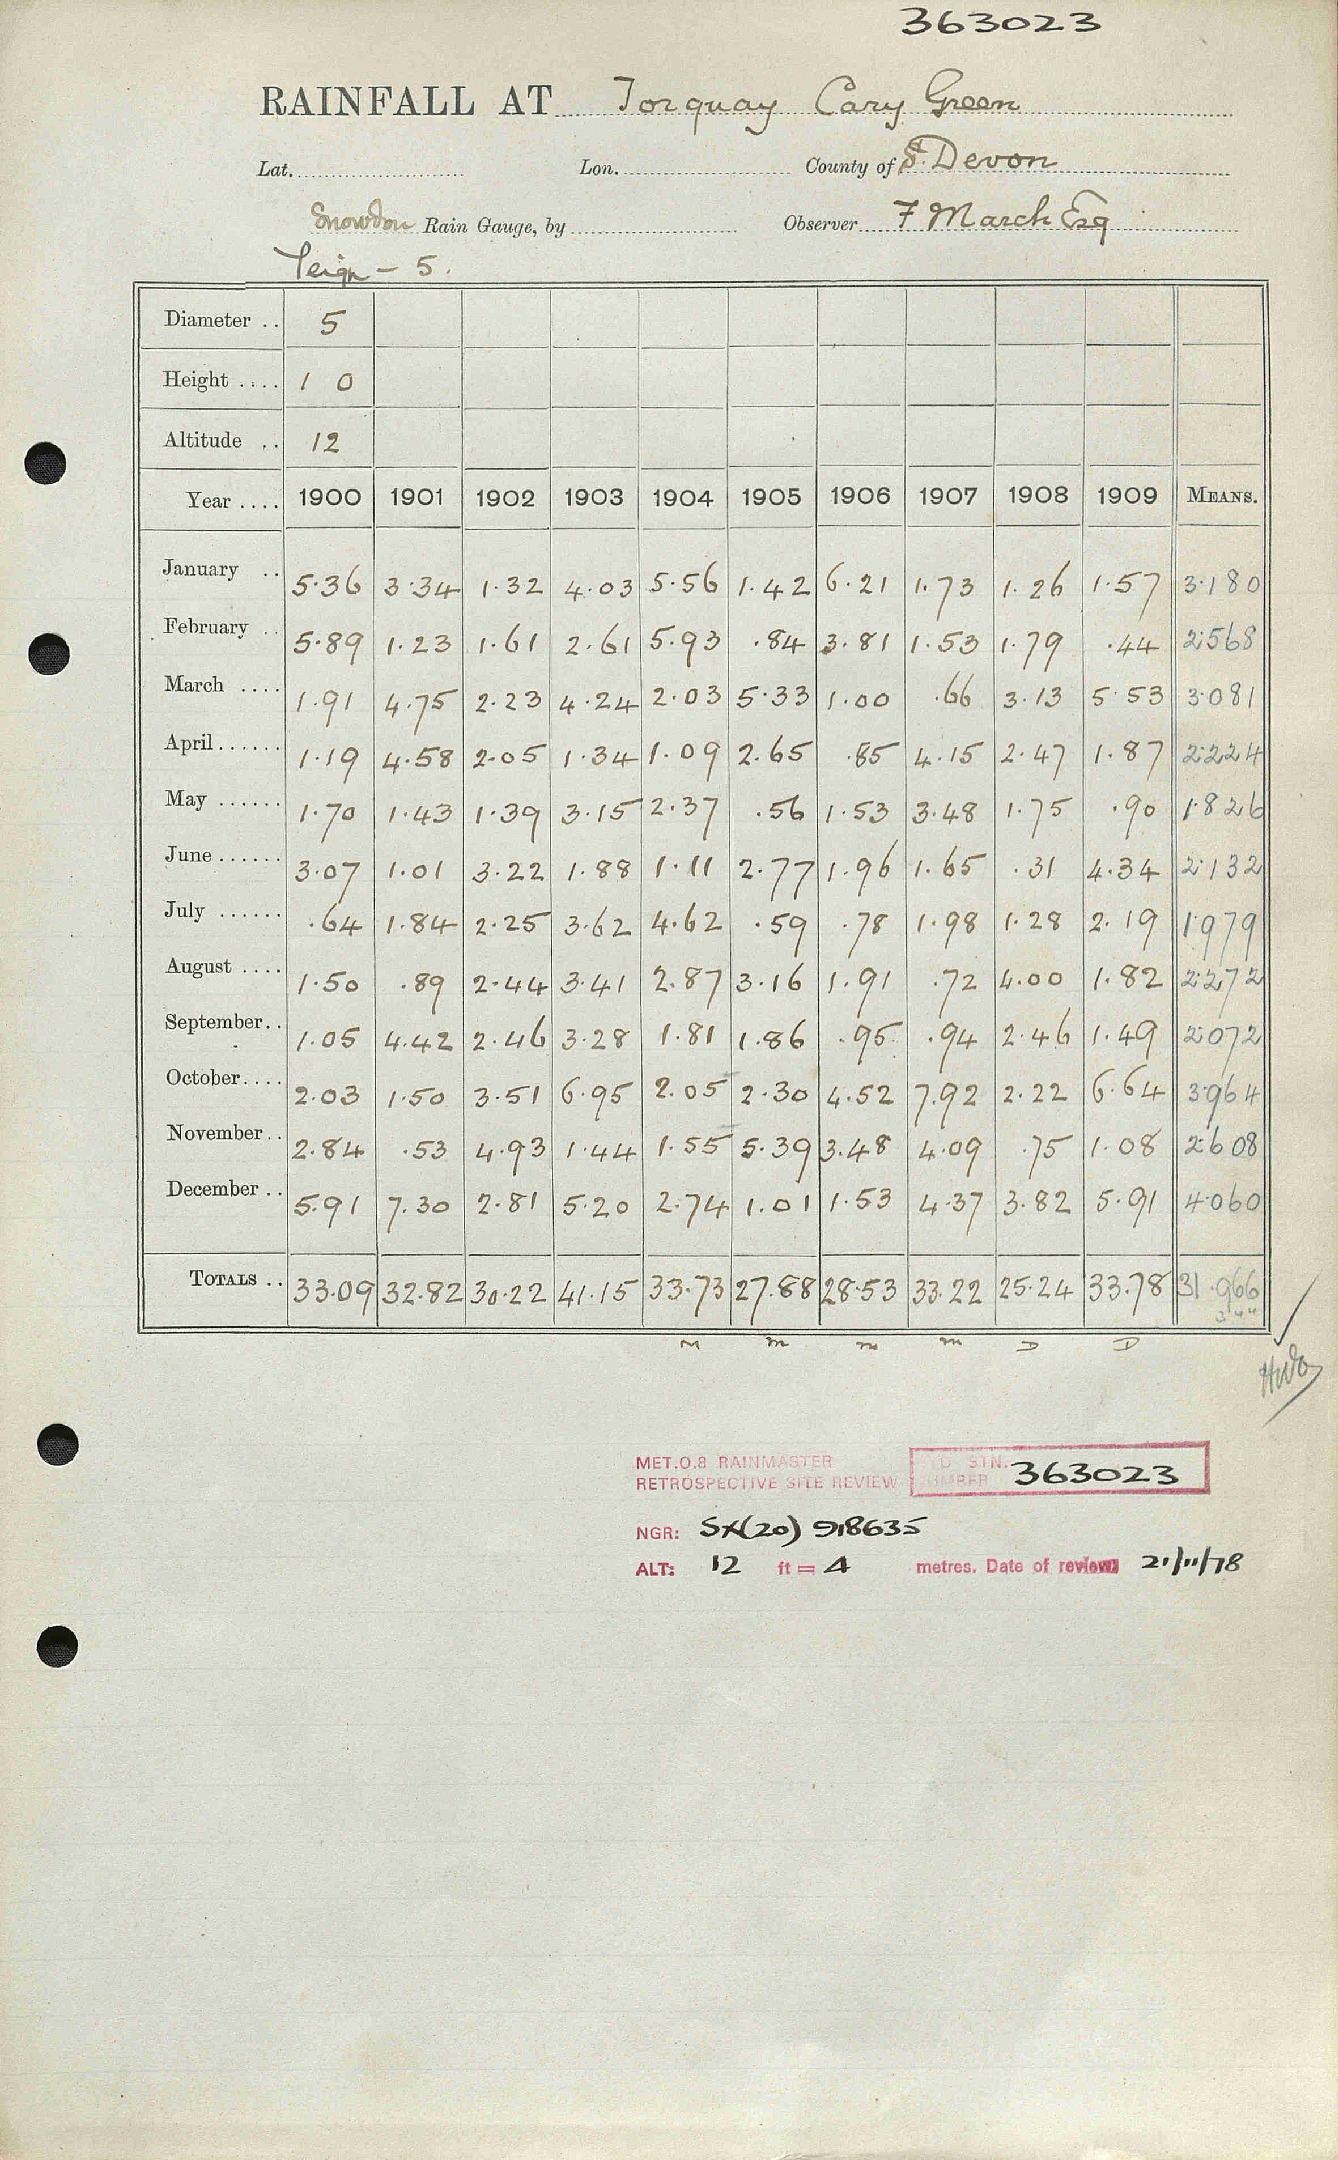 363023
RAINFALL AT Torquay Cary Green
Lat. Lon. County of S. Devon
Snowdon Rain Gauge, by Observer F March Esq
Teign - 5.
Diameter .. 5
Height .... 1 0
Altitude .. 12
Year .... 1900 1901 1902 1903 1904 1905 1906 1907 1908 1909 MEANS.
January .. 5.36 3.34 1.32 4.03 5.56 1.42 6.21 1.73 1.26 1.57 3.180
February .. 5.89 1.23 1.61 2.61 5.93 .84 3.81 1.53 1.79 .44 2.568
March .... 1.91 4.75 2.23 4.24 2.03 5.33 1.00 .66 3.13 5.53 3.081
April...... 1.19 4.58 2.05 1.34 1.09 2.65 .85 4.15 2.47 1.87 2.224
May ...... 1.70 1.43 1.39 3.15 2.37 .56 1.53 3.48 1.75 .90 1.826
June ...... 3.07 1.01 3.22 1.88 1.11 2.77 1.96 1.65 .31 4.34 2.132
July ...... .64 1.84 2.25 3.62 4.62 .59 .78 1.98 1.28 2.19 1.979
August .... 1.50 .89 2.44 3.41 2.87 3.16 1.91 .72 4.00 1.82 2.272
September.. 1.05 4.42 2.46 3.28 1.81 1.86 .95 .94 2.46 1.49 2.072
October.... 2.03 1.50 3.51 6.95 2.05 2.30 4.52 7.92 2.22 6.64 3.964
November.. 2.84 .53 4.93 1.44 1.55 5.39 3.48 4.09 .75 1.08 2.608
December .. 5.91 7.30 2.81 5.20 2.74 1.01 1.53 4.37 3.82 5.91 4.060
TOTALS .. 33.09 32.82 30.22 41.15 33.73 27.88 28.53 33.22 25.24 33.78 31.966
MET.O.8 RAINMASTER
RETROSPECTIVE SITE REVIEW STN. NUMBER 363023
NGR: SX(20) 918635
ALT: 12 ft = 4 metres. Date of review 21/11/78